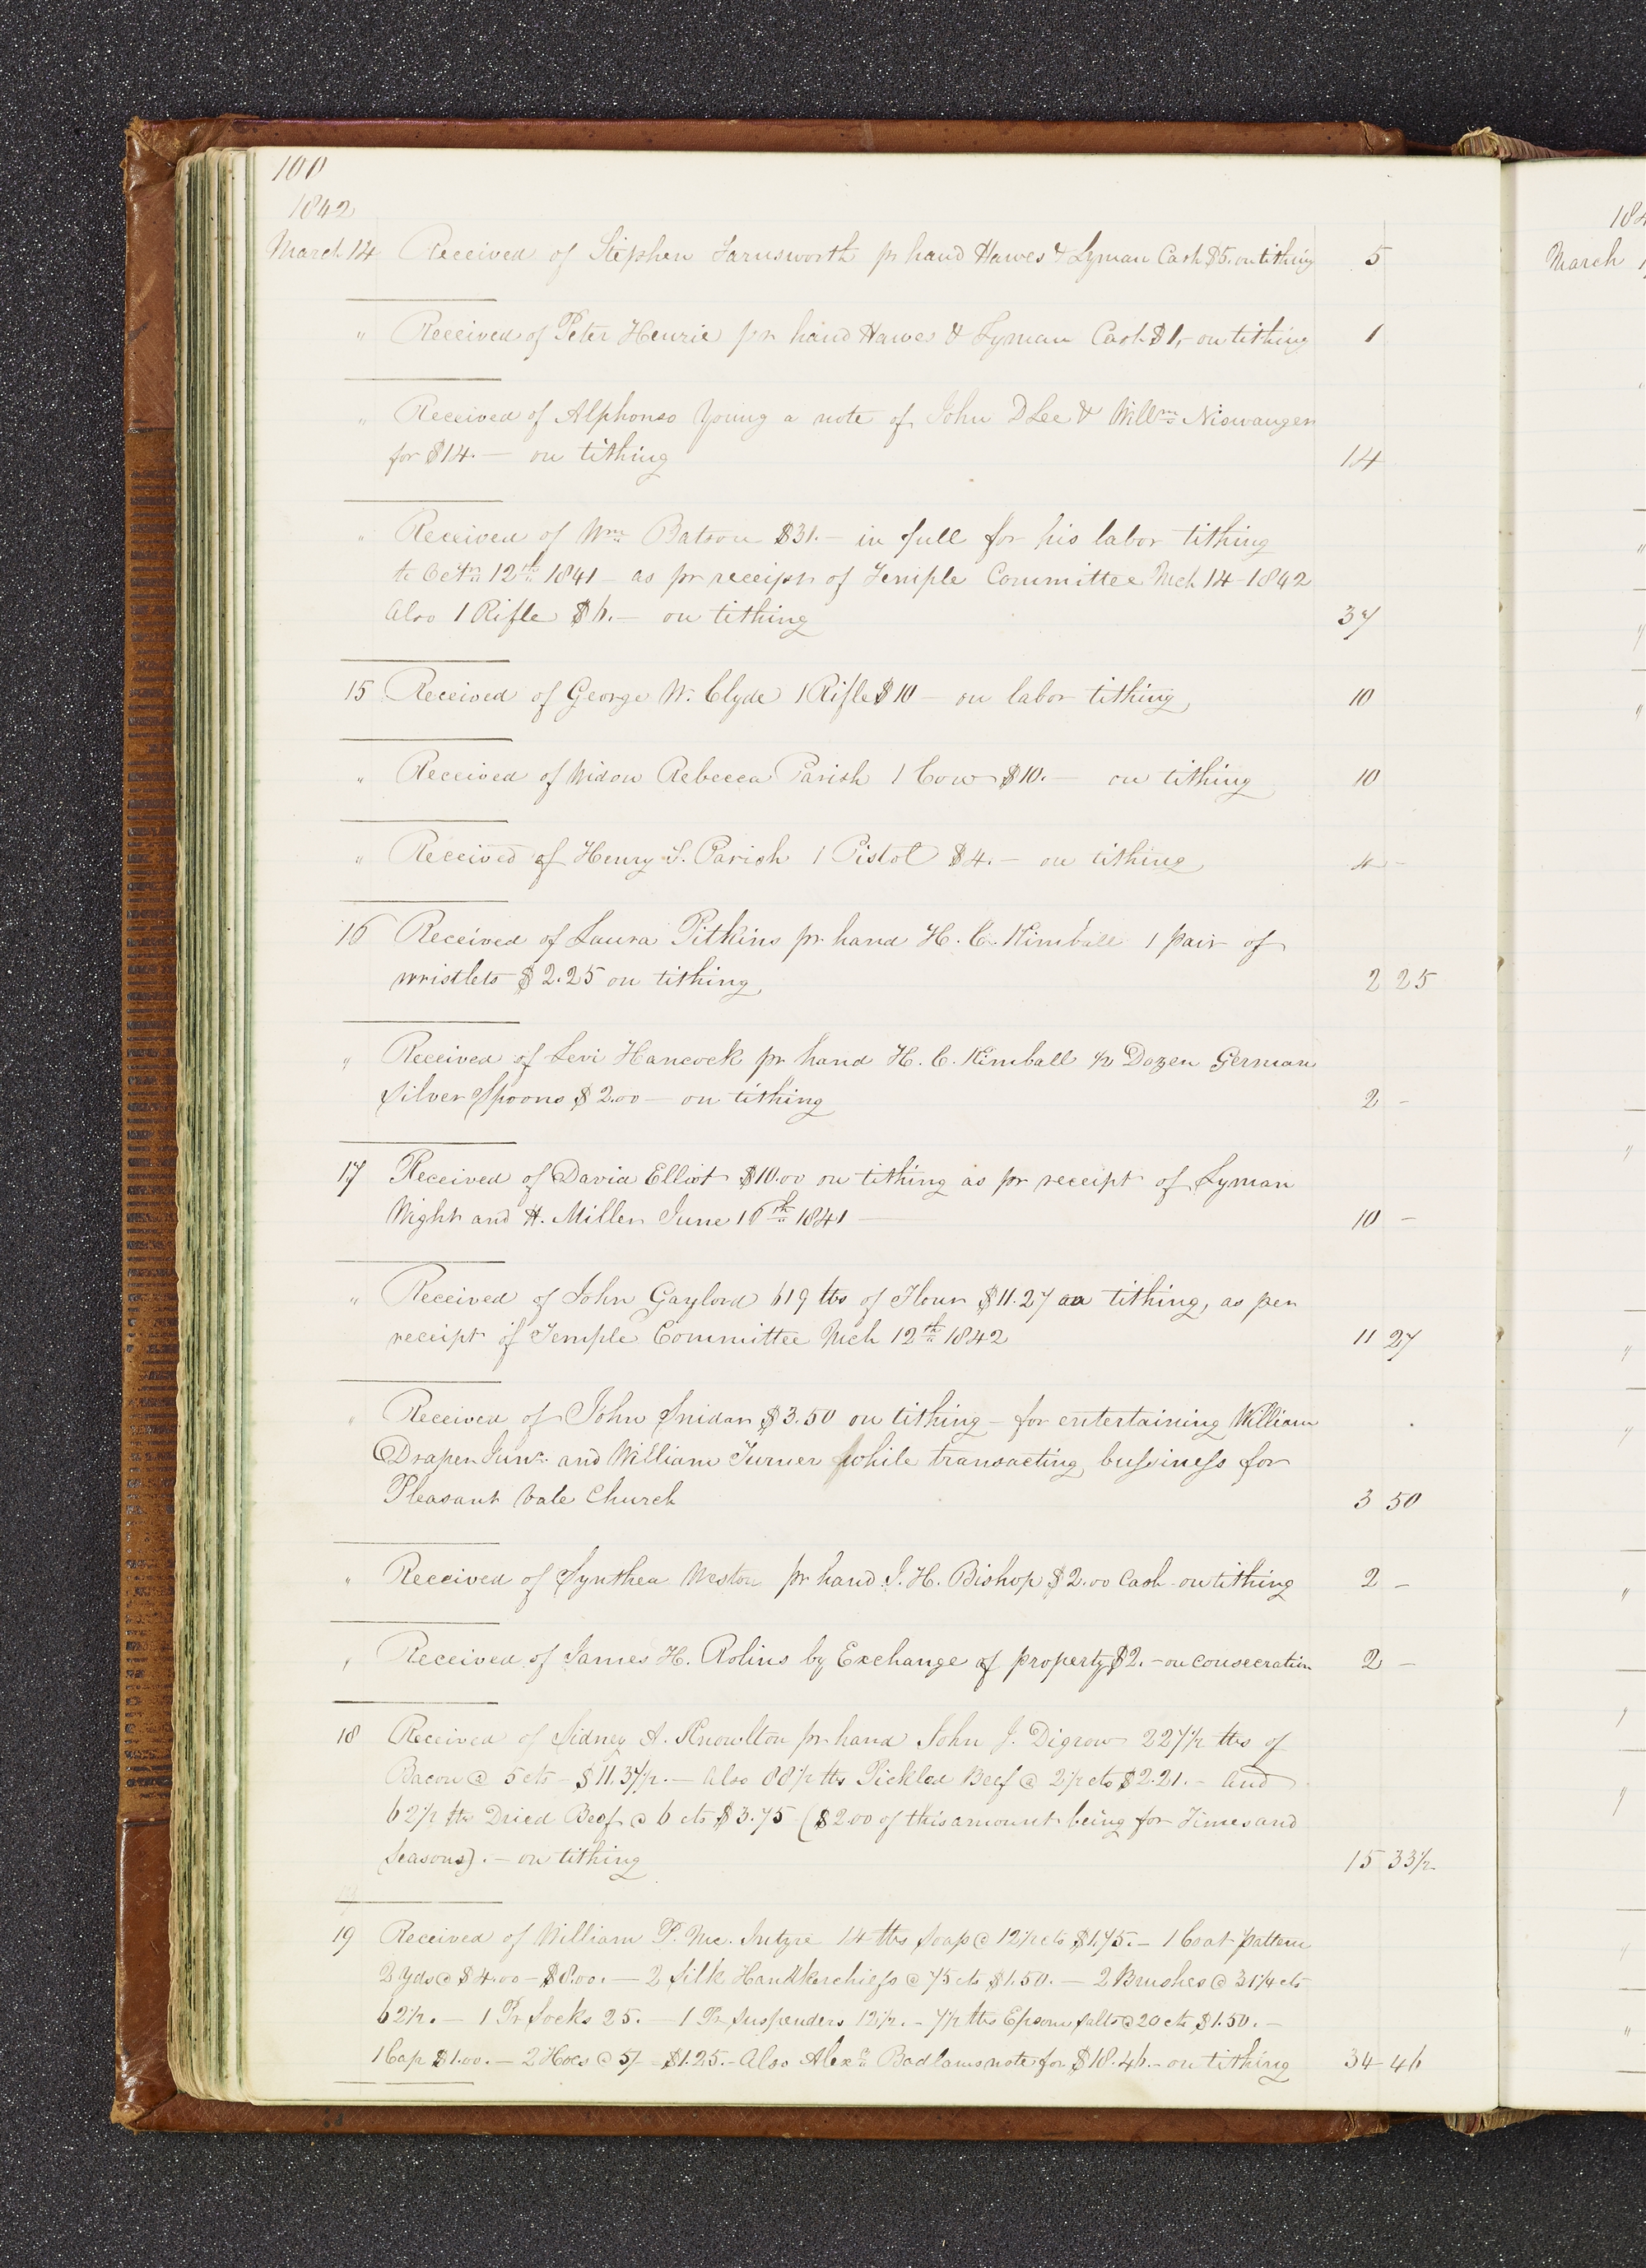 100
1842
March 14 Received of Stephen Farnsworth pr hand Hawes & Lyman Cash $5. on tithing 5
" Received of Peter Henrie pr hand Hawes & Lyman Cash $1,- on tithing 1
" Received of Alphonso Young a note of John D Lee & Willm Niswanger
for $14.— on tithing 14
" Received of Wm Batson $31.— in full for his labor tithing
to Octr 12th 1841 – as pr receipt of Temple Committee Mch 14 – 1842
also 1 Rifle $6.— on tithing 37
15 Received of George W. Clyde 1 Rifle $10 – on labor tithing 10
" Received of Widow Rebecca Parish 1 Cow $10.— on tithing 10
" Received of Henry S. Parish 1 Pistol $4.— on tithing 4 -
16 Received of Laura Pitkins pr hand H. C. Kimball 1 pair of
wristlets $2.25 on tithing 2 25
" Received of Levi Hancock pr hand H. C. Kimball 1/2 Dozen German
Silver Spoons $2.00 — on tithing 2 -
17 Received of David Elliot $10.00 on tithing as pr receipt of Lyman
Wight and H. Miller June 16th 1841 — 10 -
" Received of John Gaylord 619 lbs of Flour $11.27 on tithing, as per
receipt of Temple Committee Mch 12th 1842 11 27
" Received of John Snidar $3.50 on tithing – for entertaining William
Draper Junr. and William Turner while transacting bussiness for
Pleasant Vale Church 3 50
" Received of Synthea Weston pr hand J. H. Bishop $2.00 Cash on tithing 2 -
" Received of James H. Rolins by Exchange of property $2.- on consecration 2 -
18 Received of Sidney A. Knowlton pr hand John J. Digrow 227 1/2 lbs of
Bacon @ 5 cts – $11.37 1/2.— also 88 1/2 lbs Pickled Beef @ 2 1/2 cts $2.21.– and
62 1/2 lbs Dried Beef @ 6 cts $3.75 ($2.00 of this amount being for Times and
Seasons).— on tithing 15 33 1/2
19 Received of William P. Mc.Intyre 14 lbs Soap @ 12 1/2 cts $1.75.– 1 Coat pattern
2 yds @ $4.00 – $8.00.— 2 Silk Handkerchiefs @ 75 cts $1.50.— 2 Brushes @ 31 1/4 cts
62 1/2.— 1 Pr Socks 25.— 1 Pr Suspenders 12 1/2.– 7 1/2 lbs Epsom Salts @ 20 cts $1.50.—
1 Cap $1.00.— 2 Hoes @ 5/- $1.25.- Also Alexr Badlams note for $18.46.- on tithing 34 46
184
March 1